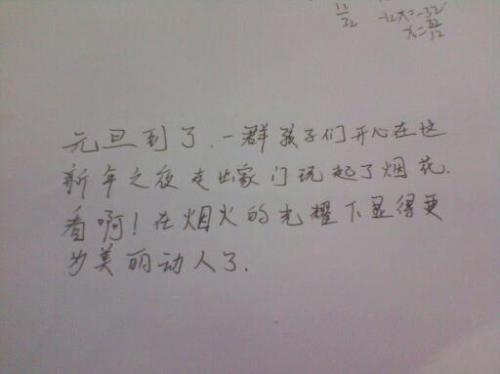 12/32 -12x=-32
x=32/12
元旦到了.一群孩子们开心在这
新年之夜走出家门玩起了烟花.
看啊!在烟火的光耀下显得更
为美丽动人了.